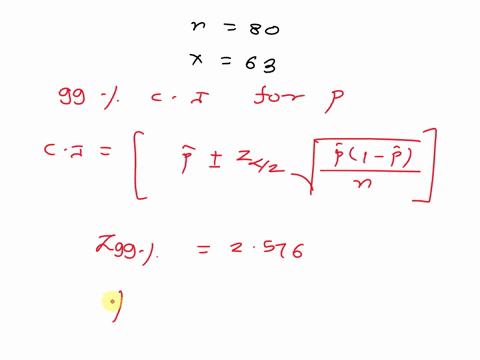 n = 80
x = 63
99 % C.I for p
C.I = [ p̂ ± z α/2 √( p̂(1 - p̂) / n ) ]
Z99% = 2.576